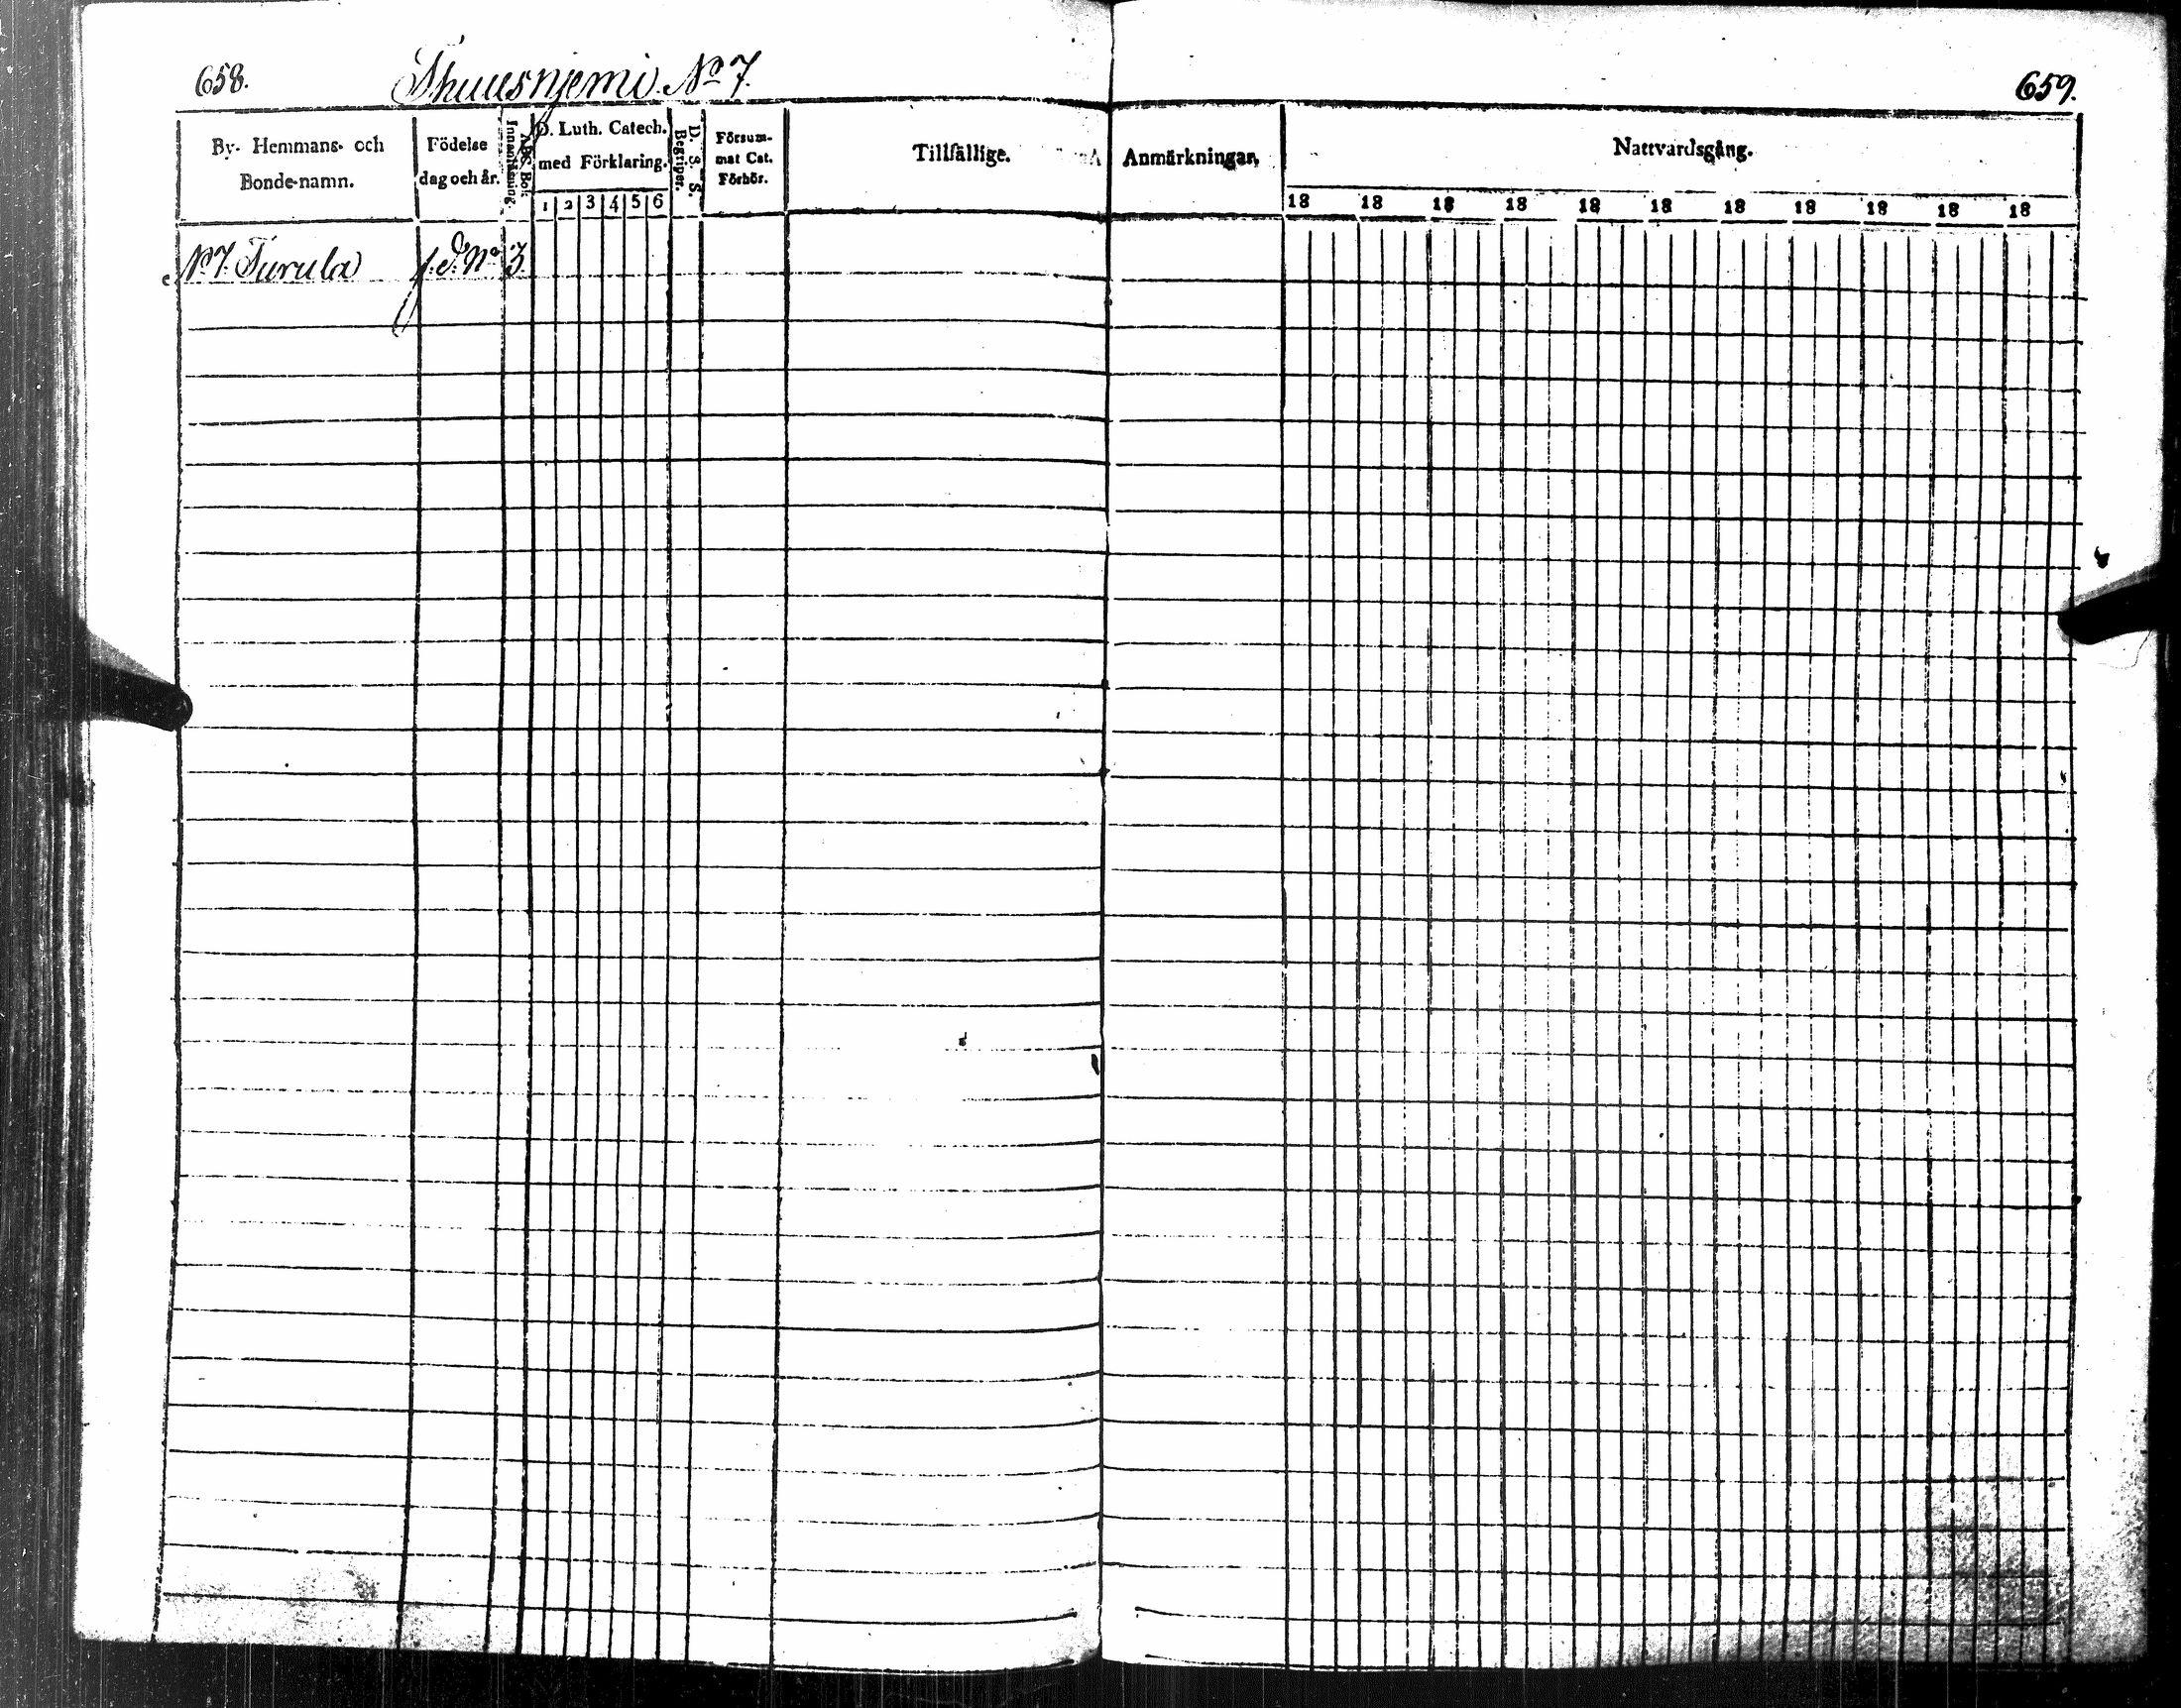 658.
Thuusnjemi. No 7.
659.
By- Hemmans- och
Bonde-namn.
Födelse
dag och år.
Innanläsning.
ABC Bok
D. Luth. Catech.
med Förklaring.
1 2 3 4 5 6
D. S. S.
Begriper.
Försum-
mat Cat.
Förhör.
Tillfällige.
Anmärkningar.
Nattvardsgång.
18 18 18 18 18 18 18 18 18 18 18
No 7. Turula f. d. No 3.